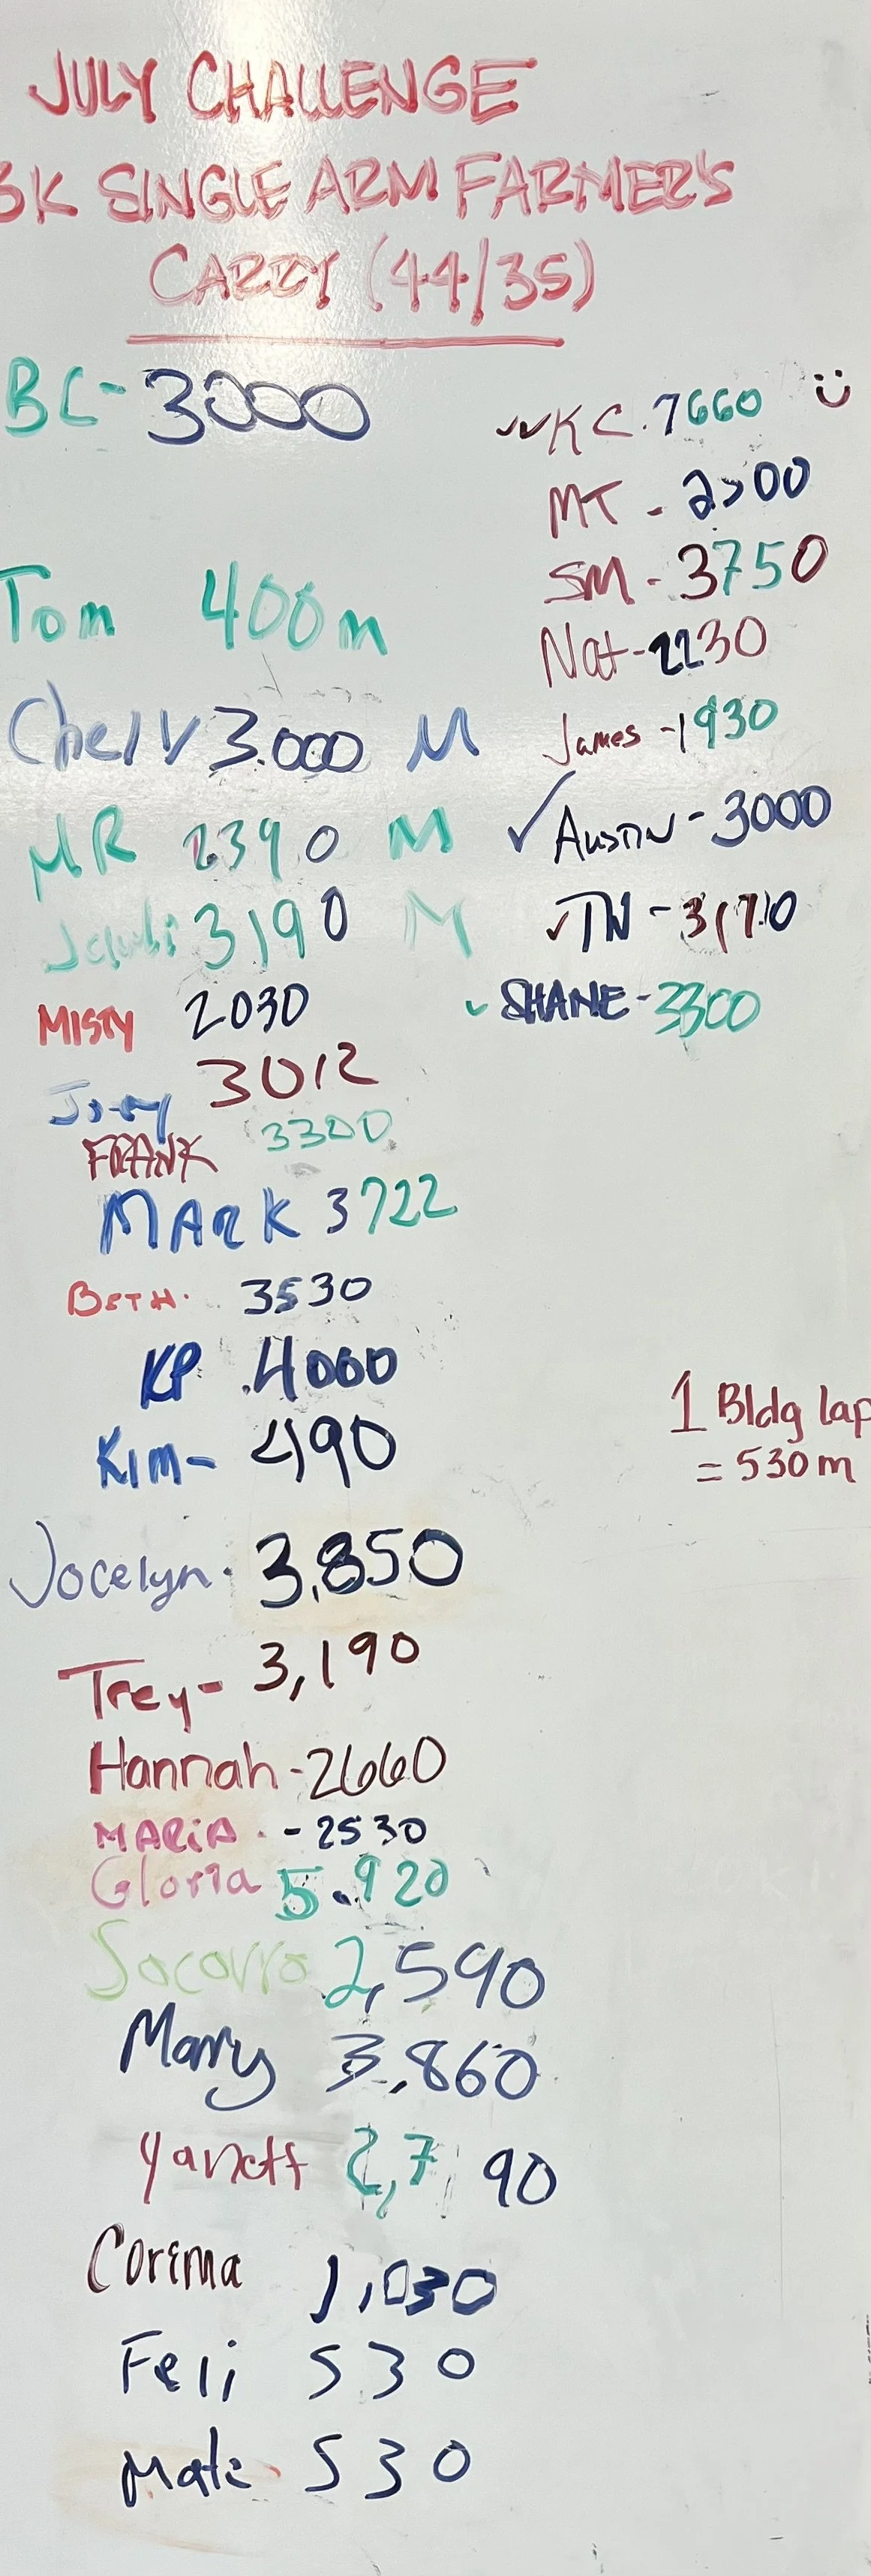 JULY CHALLENGE
3K SINGLE ARM FARMER'S
CARRY (44/35)
BC - 3000
Tom 400m
3.000 M
MR 2390 M
3190 M
MISTY 2030
3012
FRANK 3300
MARK 3722
BETH. 3530
KP .4000
KIM- 490
Jocelyn. 3,850
Trey- 3,190
Hannah - 2660
MARIA. - 2530
Gloria 5.920
Socorro 2,590
3.860
2,7 90
Corima 1,030
Feli 530
530
✓✓KC.7660 ü
MT - 2700
SM - 3750
Nat - 2230
James - 1930
✓ AUSTIN - 3000
✓TN - 3170
✓ SHANE - 3300
1 Bldg lap
= 530m